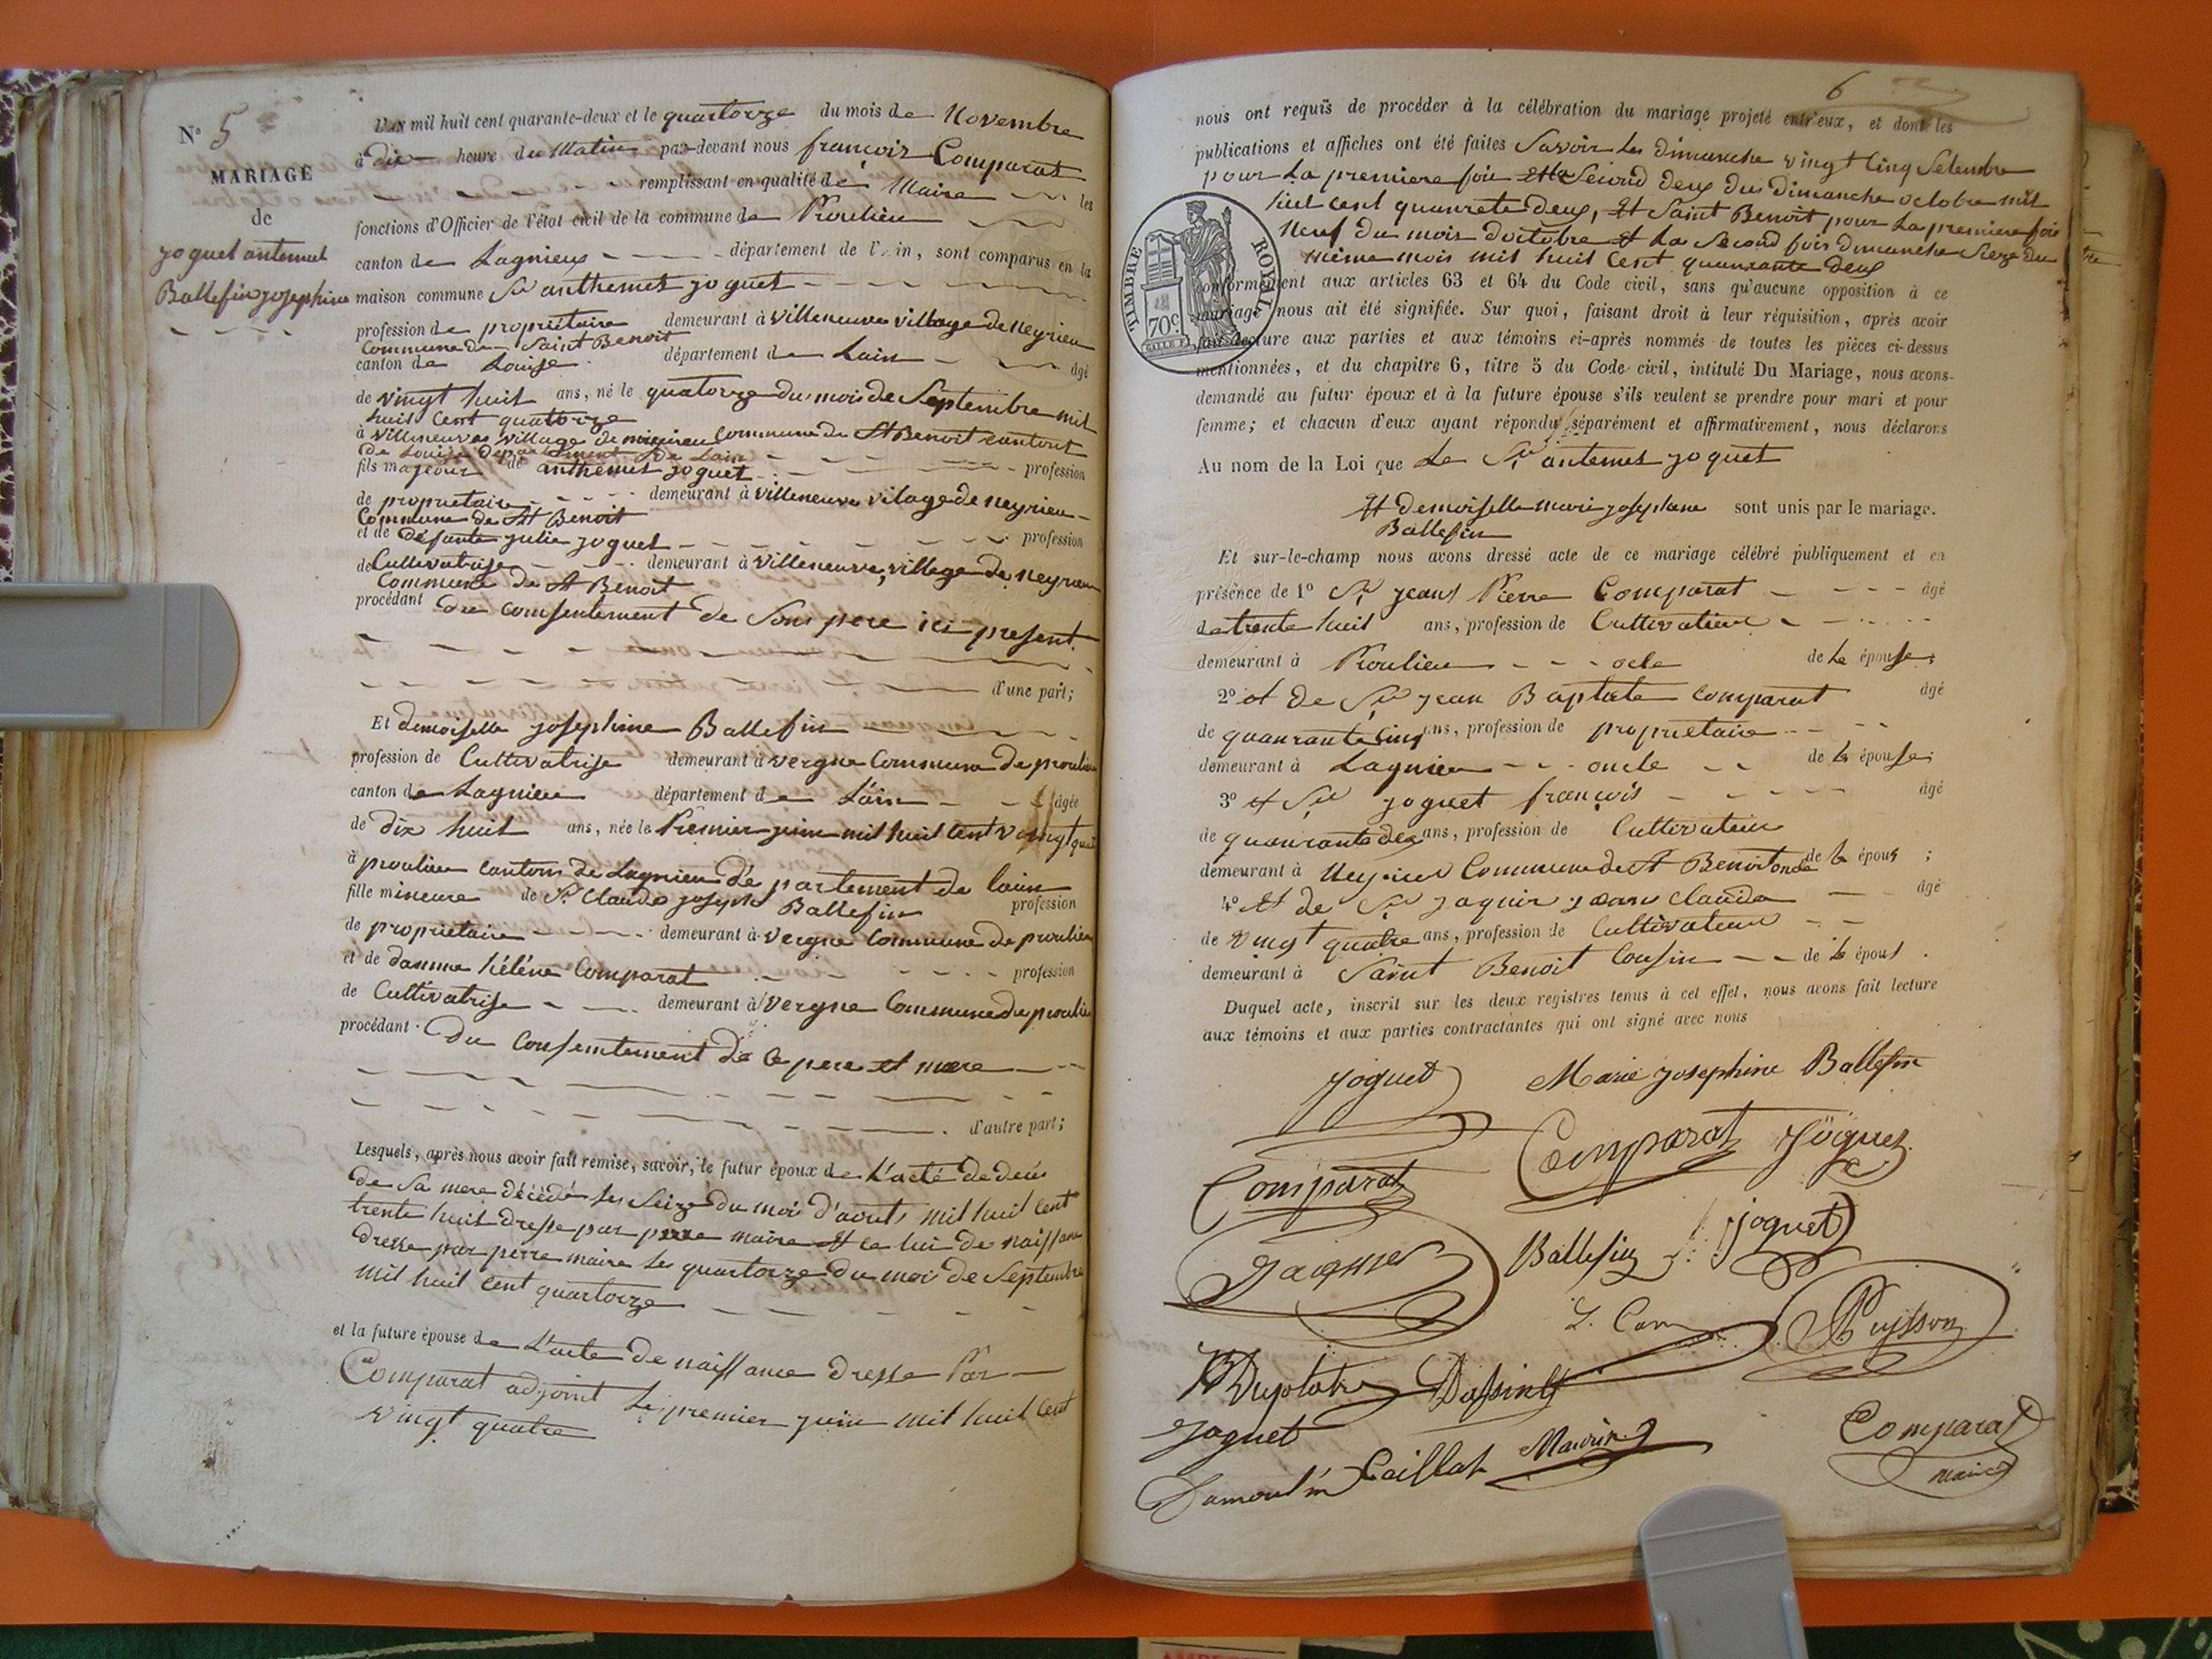 N° 5
MARIAGE
de
joguet antemet
Ballefin josephine
L'an mil huit cent quarante-deux et le quartorze du mois de Novembre
à dix heure du Matin par-devant nous françois Comparat
remplissant en qualité de Maire les
fonctions d'Officier de l'état civil de la commune de Proulieu
canton de Lagnieux département de l'Ain, sont comparus en la
maison commune Sr anthemet joguet
profession de proprietaire demeurant à villeneuve village de neyrieu
Commune de Saint Benoit
canton de Louise département de Lain âgé
de vingt huit ans, né le quatorze du mois de Septembre mil
huit Cent quattorze
à villeneuve village de Commune de St Benoit cantont
de Louise departement de Lain
fils majeur de anthemet joguet profession
de proprietaire demeurant à villeneuve vilage de neyrieu
Commune de St Benoit
et de défunte julie joguet profession
de Cultivatrise demeurant à villeneuve, village de neyrieu
Commune de St Benoit
procédant du comsentement de Sons pere ici present.
d'une part;
Et demoiselle josephine Ballefin
profession de Cultivatrise demeurant à vergne Commune de proulieu
canton de Lagnieu département de L'ain âgée
de dix huit ans, née le Premier juin mil huit Cent vingt quat
à proulieu cantons de Lagnieu dé partement de lain
fille mineure de Sr Claude joseph Ballefin profession
de proprietaire demeurant à vergne Commune de proulieu
et de damme hélène Comparat profession
de Cultivatrise demeurant à vergne Commune de proulieu
procédant du Consemtement de Ce pere et mere
d'autre part;
Lesquels, après nous avoir fait remise, savoir, le futur époux de L'acte de deces
de Sa mere décédé Les Seize du moi d'avouts mil huit Cent
trente huit dresse par perre maire et ce lui de naissane
dresse par perre maire Le quartorze du moi de Septembre
mil huit Cent quartorze
et la future épouse de L'acte de naissance dresse Par
Comparat adjoint Le premier juin mil huit Cent
vingt quatre
6
nous ont requis de procéder à la célébration du mariage projeté entr'eux, et dont les
publications et affiches ont été faites Savoir Les dimanche vingt Cinq Setembre
pour La premiere fois et La Seicond deux du Dimanche octobre mil
huit cent quanrete deux, Et Saint Benoit pour La premiere fois
Neuf du mois doctobre et La Second fois dimanche Seize du
même mois mil huit Cent quanrante deux
TIMBRE ROYAL
70c.
conformément aux articles 63 et 64 du Code civil, sans qu'aucune opposition à ce
mariage nous ait été signifiée. Sur quoi, faisant droit à leur réquisition, après avoir
fait lecture aux parties et aux témoins ci-après nommés de toutes les pièces ci-dessus
mentionnées, et du chapitre 6, titre 5 du Code civil, intitulé Du Mariage, nous avons
demandé au futur époux et à la future épouse s'ils veulent se prendre pour mari et pour
femme; et chacun d'eux ayant répondu séparément et affirmativement, nous déclarons
Au nom de la Loi que Le Sr antemet joguet
Et demoiselle marie josephine sont unis par le mariage.
Ballefin
Et sur-le-champ nous avons dressé acte de ce mariage célébré publiquement et en
présence de 1° Sr jeans Pierre Comparat âgé
de trente huit ans, profession de Cultivatieur
demeurant à Proulieu ocle de Le épouse;
2° et de Sr jean Baptiste comparat âgé
de quanrante Cinq ans, profession de proprietaire
demeurant à Lagnieu oncle de la épouse;
3° et Sr joguet françois âgé
de quanrante deux ans, profession de Cultivateur
demeurant à Neyrieu Commune de St Benoit oncle de le époux;
4° Et de Sr jaquir jean claude âgé
de vingt quatre ans, profession de Cultivateur
demeurant à Saint Benoit Cousin de le épous.
Duquel acte, inscrit sur les deux registres tenus à cel effet, nous avons fait lecture
aux témoins et aux parties contractantes qui ont signé avec nous
joguet Marie josephine Ballefin
Comparat Comparat joguet
Ballefin joguet
Puysson
Duplatre
joguet
Dumoulin Caillat Maurin Comparat
maire